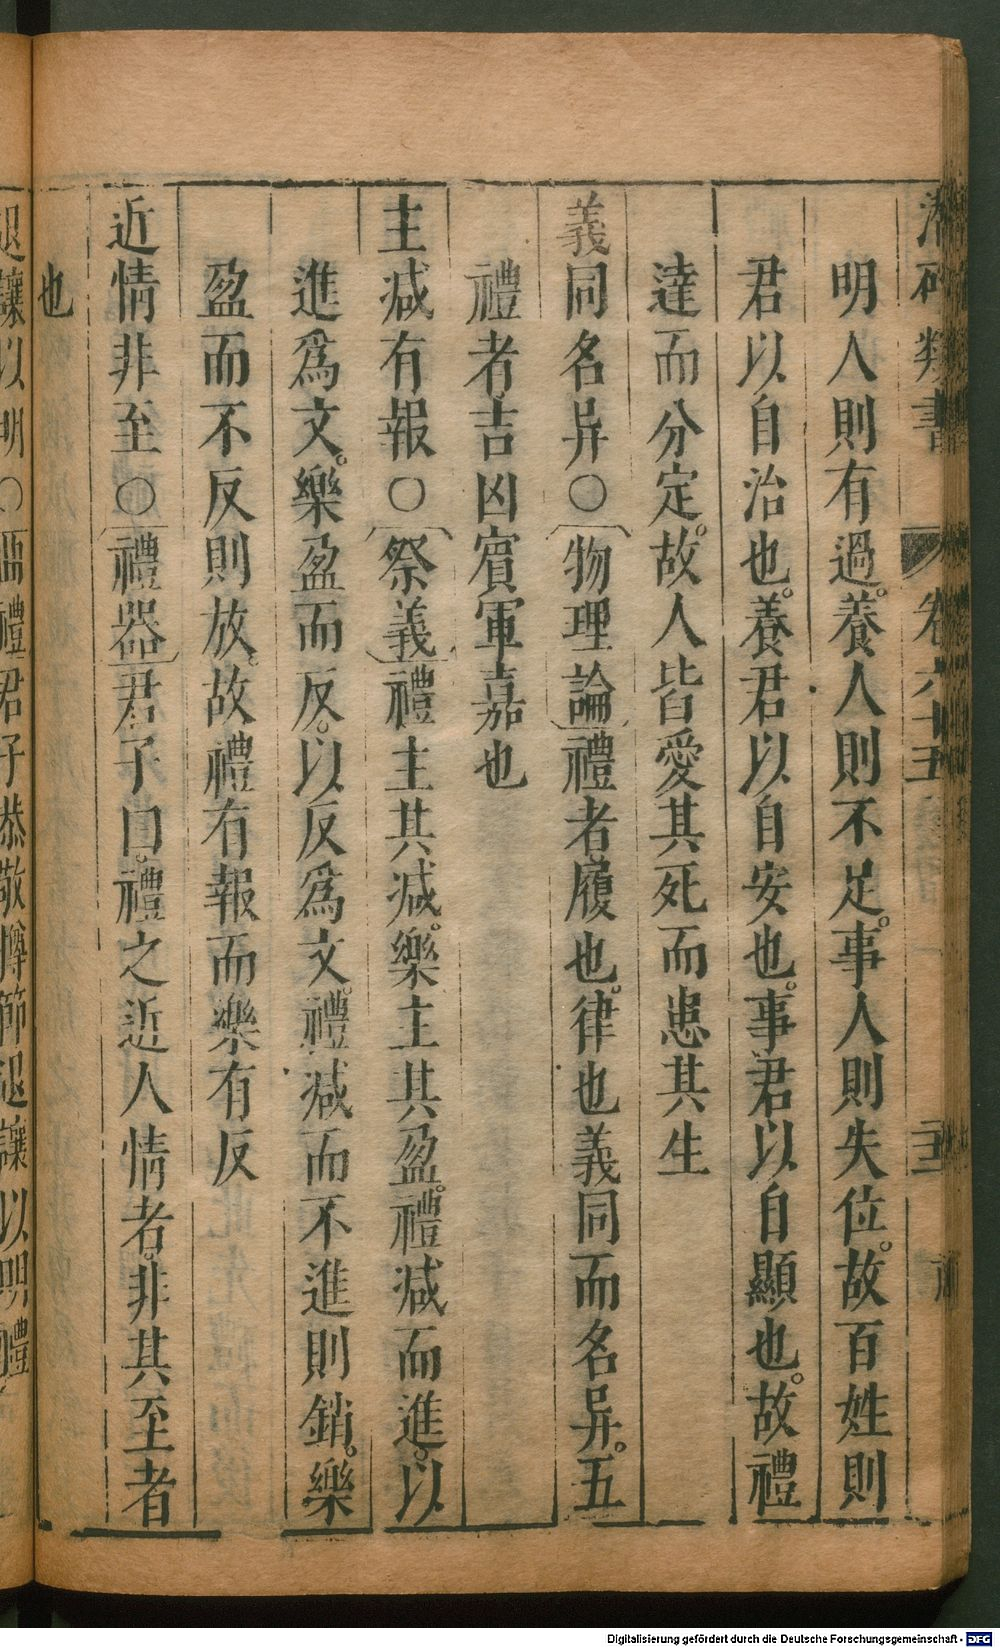 潛確類書 卷六十五 五
明人則有過。養人則不足。事人則失位。故百姓則
君以自治也。養君以自安也。事君以自顯也。故禮
達而分定。故人皆愛其死而患其生
義同名异○物理論禮者履也。律也義同而名异。五
禮者吉凶賓軍嘉也
主減有報○祭義禮主其減。樂主其盈。禮減而進。以
進爲文。樂盈而反。以反爲文。禮減而不進則銷。樂
盈而不反則放。故禮有報而樂有反
近情非至○禮器君子曰。禮之近人情者。非其至者
也
退讓以明○曲禮君子恭敬撙節退讓以明禮
Digitalisierung gefördert durch die Deutsche Forschungsgemeinschaft - DFG